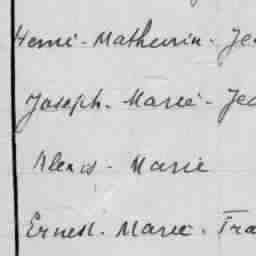 Henri - Mathurin - Je
Joseph - Marie - Jea
Alexis - Marie
Ernest - Marie - Fra